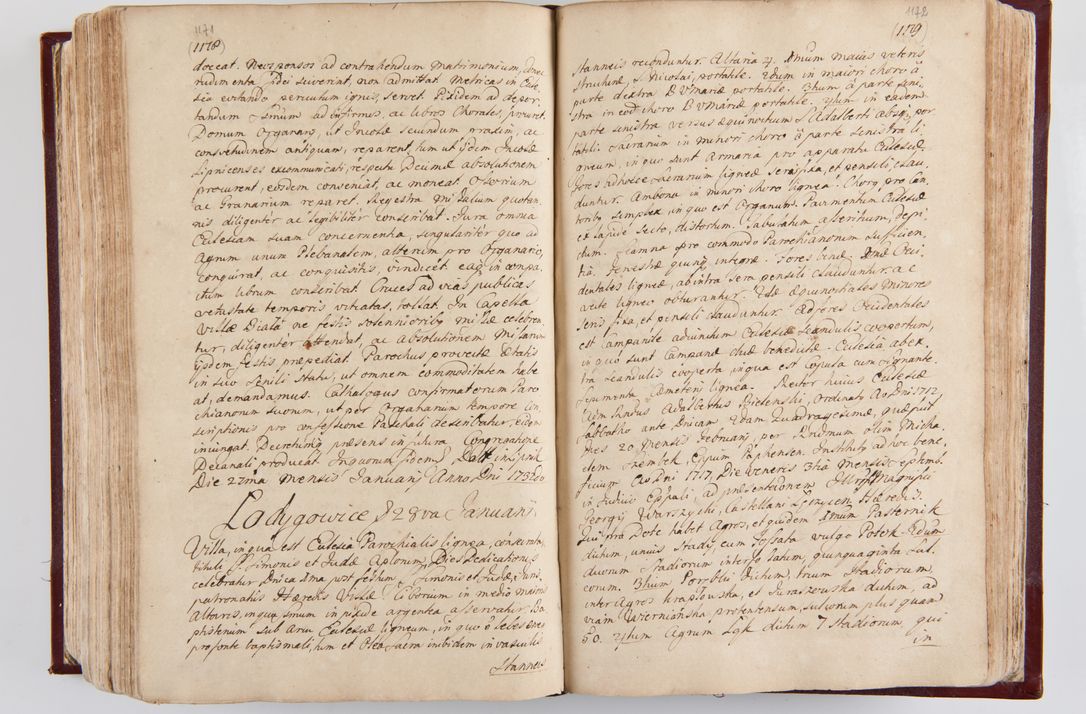 1171
(1178)
doceat. Nec sponsos ad contrahendum Matrimonium, donec
rudimenta fidei sciverint, non admittat. Metricas in Eccle-
sia evitando periculum ignis, servet. Pixidem ad depor-
tandum SSmum ad infirmos, ac libros Chorales, procuret.
Domum Organarij, ut Incolæ secundum praxim, ac
consvetudinem antiquam, reparent, tum ut ijdem Incolæ
Lipnicenses excommunicati, respectu Decimæ absolutionem
procurent, eosdem conveniat, ac moneat.
ac Granarium reparet. Regestra Missarum quotan-
nis diligenter ac legibiliter conscribat. Jura omnia
Ecclesiam suam concernentia, singulariter quo ad
Agrum unum Plebanalem, alterum pro Organario,
conquirat, ac conquisitis, vindicet eaq; in compa-
ctum librum conscribat. Cruces ad vias publicas
vetustate temporis vitiatas, tollat. In Capella
Villæ Biała ne festis solennioribq Missæ celebren-
tur, diligenter attendat, ac absolutionem Missarum
ijsdem festis, præpediat. Parochus provectæ Ætatis
in suo senili statu, ut omnem commoditatem habe-
at, demandamus. Cathalogus confirmatorum Paro-
chianorum suorum, ut per Organarium tempore con-
scriptionis pro confessione Paschali describatur, eidem
iniungat. Decretumq præsens in futura Congregatione
Decanali producat. In quorum fidem Datt in Lipnik
Die 22ma Mensis Januarij Anno Dni 1732do
Łodygowice d 28va Januarij
Villa, in qua est Ecclesia Parochialis lignea, consecrata,
tituli SS. Simonis et Judæ Aplorum, Dies Dedicationis
celebratur Dnica 1ma post festum Simonis et Judæ, Juris-
patronatus Hæredis Villæ. Ciborium in medio maioris
Altaris, in quo SSmum in pixide argentea asservatur. Ba-
ptisterium sub Arcu Ecclesiæ ligneum, in quo
pro fonte baptismali, tum et Olea Sacra inibidem in vasculis
Stanneis
1172
(1179)
Stanneis reconduntur. Altaria 4. 1mum maius veteris
structuræ, S. Nicolai, portatile. 2dum in maiori choro à
parte dextra B V Mariæ portatile. 3tium à parte sini-
stra in eod choro B V Mariæ portatile. 4tum in eadem
parte sinistra versus æquinoctium S. Adalberti absq; por-
tatili. Sacrarium in minori choro à parte sinistra li-
gneum, in quo sunt Armaria pro apparatu Ecclesiæ.
fores ad hocce Sacrarium ligneæ sera fixa, et pensili clau-
duntur. Ambona in minori choro lignea. Chorq pro Can-
toribq simplex, in quo est Organum. Pavimentum Ecclesiæ
ex lapide secto, distortum. Tabulatum asseritium, depi-
ctum. Scamna pro commodo Parochianorum sufficien-
tia. Fenestræ quinq integræ. Fores binæ. 1mæ Occi-
dentales ligneæ, ab intra sera pensili clauduntur, ac
vecte ligneo obturantur. 2dæ Æquinoctiales minores
sera fixa, et pensili clauduntur. Ad fores Occidentales
est Campanile adiunctum Ecclesiæ scandulis coopertum,
in quo sunt Campanæ duæ benedictæ. Ecclesia ab ex-
tra scandulis cooperta, in qua est Copula cum signante.
Septimenta Cæmeterij lignea. Rector huius Ecclesiæ
Adm. Rndus Adalbertus Bielenski, ordinatq Ao Dni 1712
Sabbatho ante Dnicam 2dam Quadragesimæ, quæ fuit
dies 20 Mensis Februarij, per Illndmum olim Micha-
elem Szembek, Eppum Paphensem. Institutq ad hoc bene-
ficium Ao Dni 1717, Die Veneris 3tia Mensis Septemb.
in Judicio Eppali, ad præsentationem Illris Magnifici
Georgij Warszycki, Castellani Leczycen. Hæredis.
Qui pro Dote habet Agros, et quidem 1mum Pasternik
dictum, unius Stadij, cum fossata vulgo Potok 2dum
duorum Stadiorum interfossatum, quinquaginta sul-
corum. 3tium Porębki dictum, trium Stadiorum,
inter Agros Krasowska, et Juraszowska dictum, ad
viam Wiernianska protentensum, sulcorum plus quam
50. 4tum Agrum Lgk dictum 7 stadiorum, qui
in